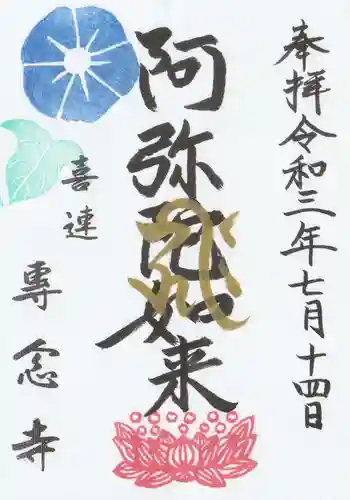 奉拝令和三年七月十四日
阿弥陀如来
喜連
專念寺